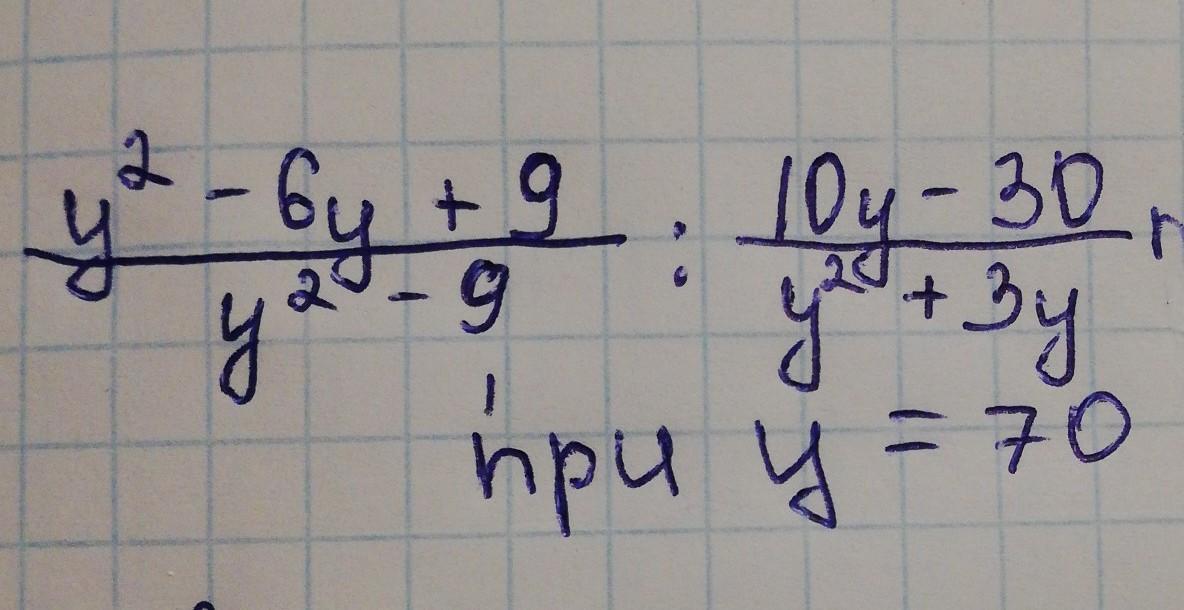 y² - 6y + 9 / y² - 9 : 10y - 30 / y² + 3y
при y = 70